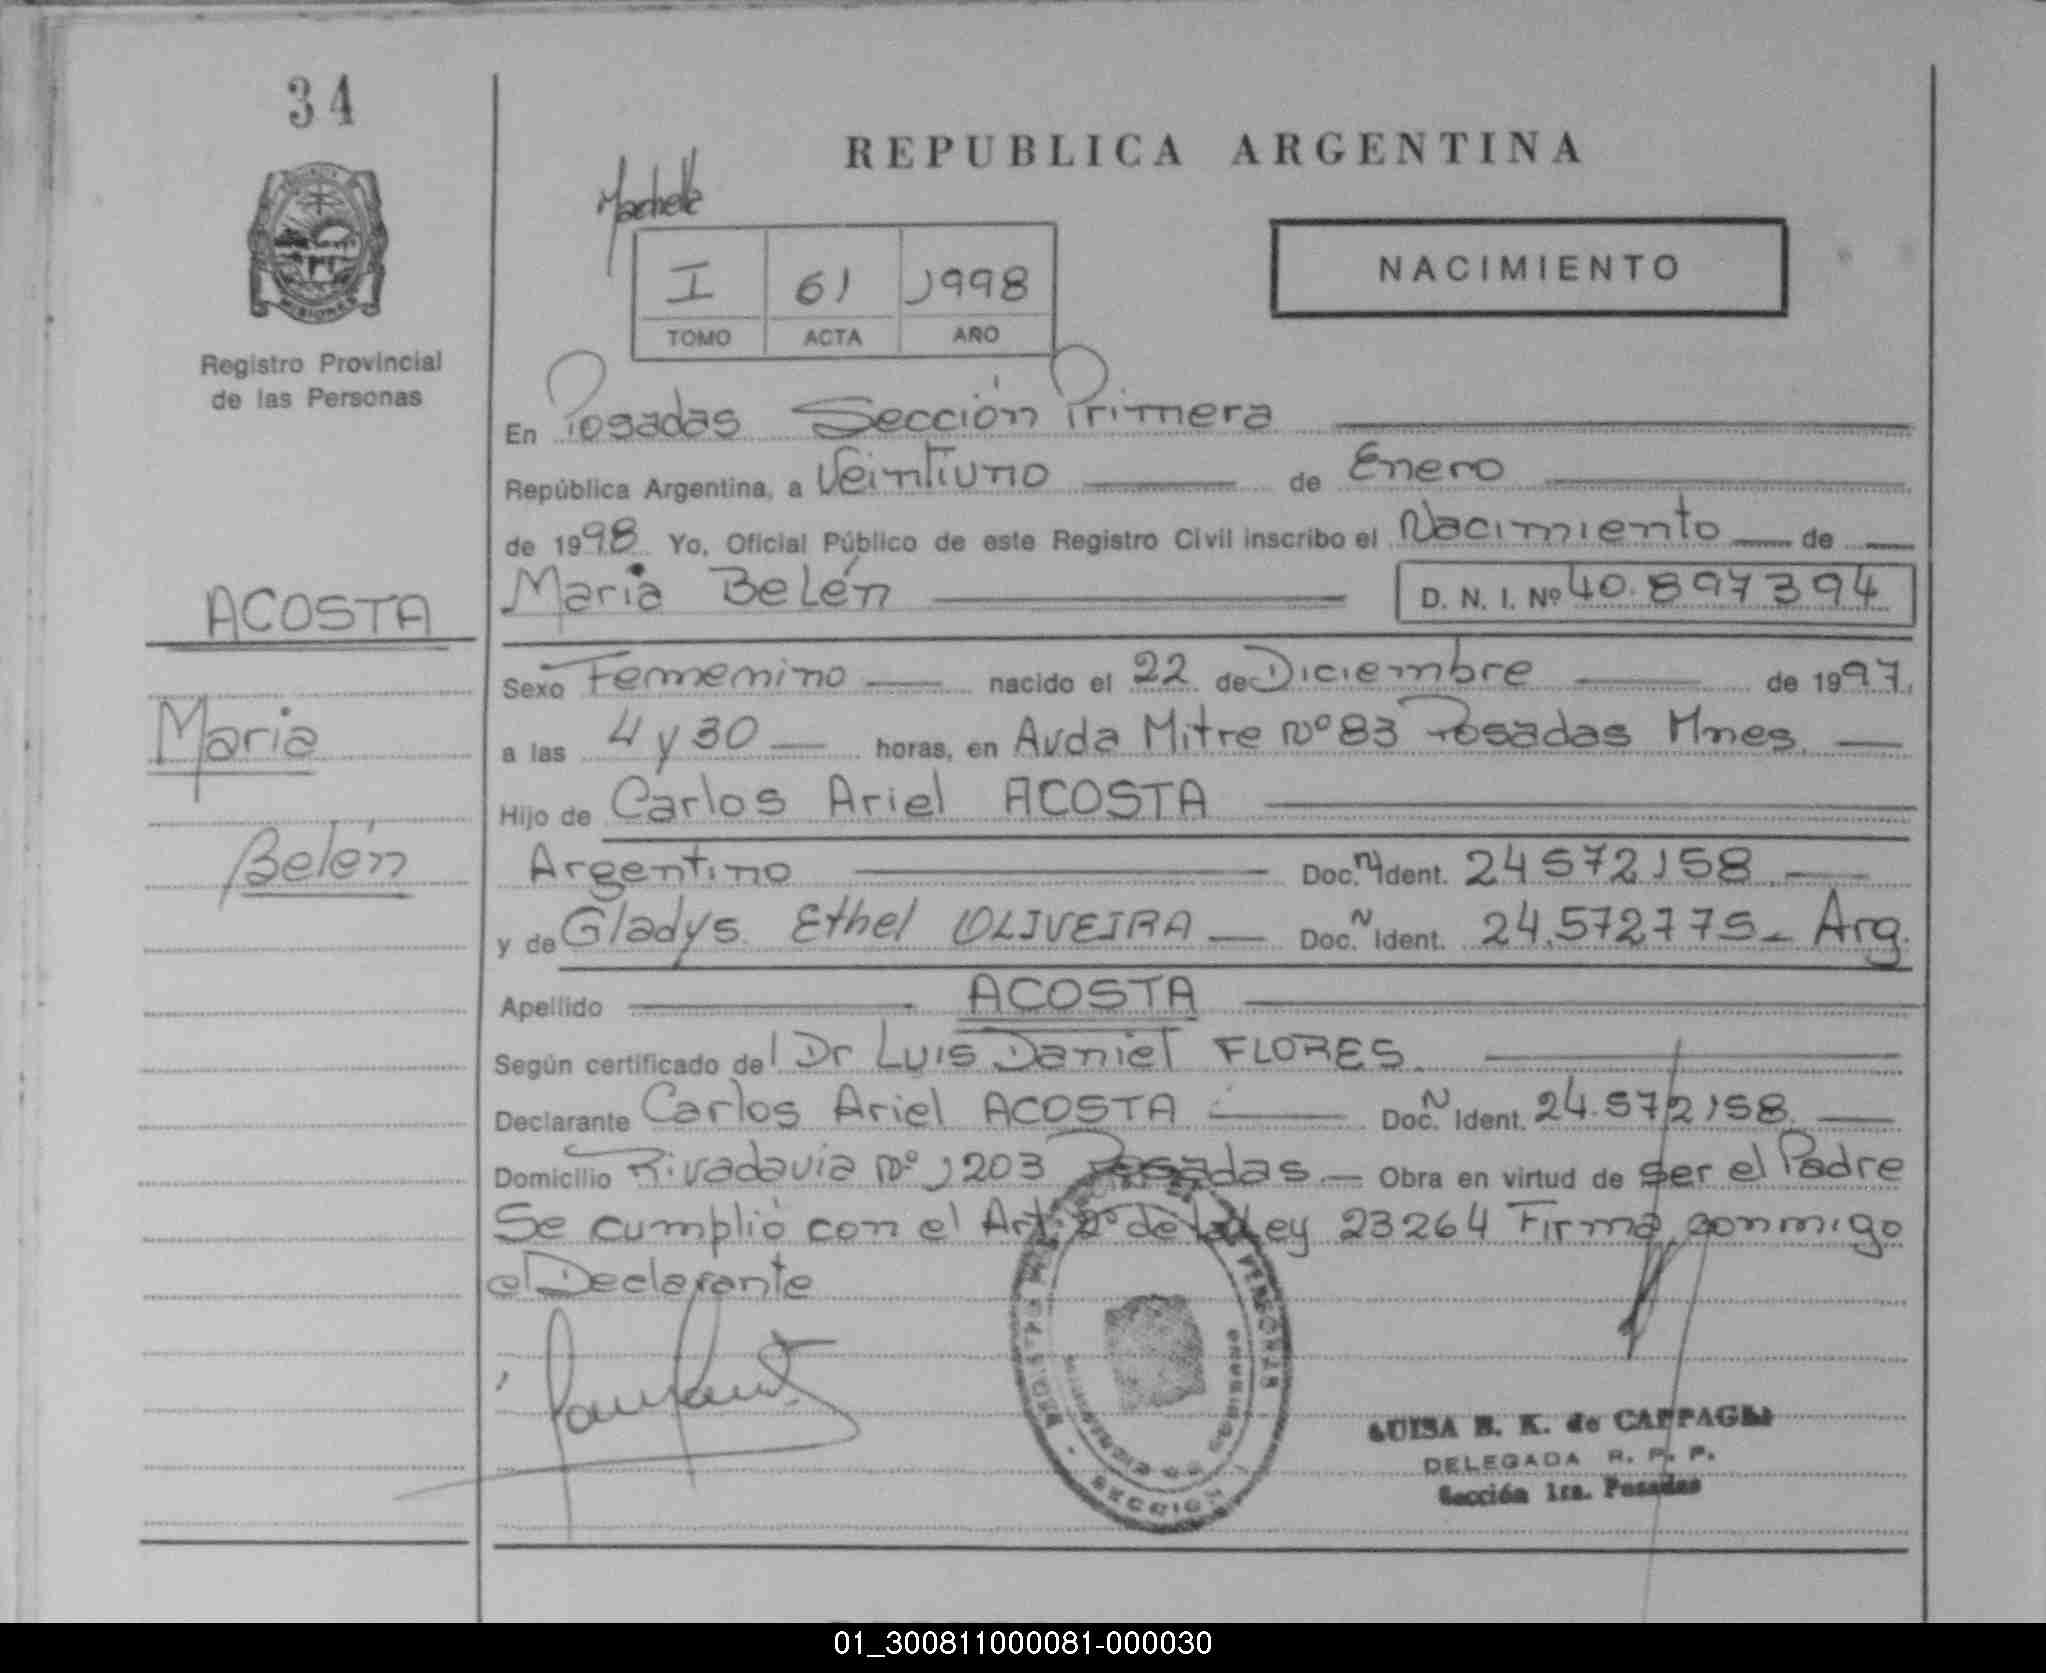 34
REPUBLICA ARGENTINA
NACIMIENTO
I 61 1998
TOMO ACTA AÑO
MISIONES
Registro Provincial
de las Personas
En Posadas Sección Primera
República Argentina, a Veintiuno de Enero
de 1998 Yo, Oficial Público de este Registro Civil inscribo el Nacimiento de
Maria Belén D. N. I. Nº 40.897394
ACOSTA
Maria
Belén
Sexo Femenino nacido el 22 de Diciembre de 1997.
a las 4 y 30 horas, en Avda Mitre Nº 83 Posadas Mnes.
Hijo de Carlos Ariel ACOSTA
Argentino Doc. N Ident. 24572158
y de Gladys Ethel OLIVEIRA Doc. N Ident. 24.572775 - Arg.
Apellido ACOSTA
Según certificado del Dr Luis Daniel FLORES.
Declarante Carlos Ariel ACOSTA Doc. N Ident. 24.572158.
Domicilio Rivadavia Nº 1203 Posadas. Obra en virtud de ser el Padre
Se cumplió con el Art. 2º de la Ley 23264 Firma conmigo
el Declarante
SECCION
LUISA B. K. de CAPPAGLI
DELEGADA R. P. P.
Sección 1ra. Posadas
01_300811000081-000030